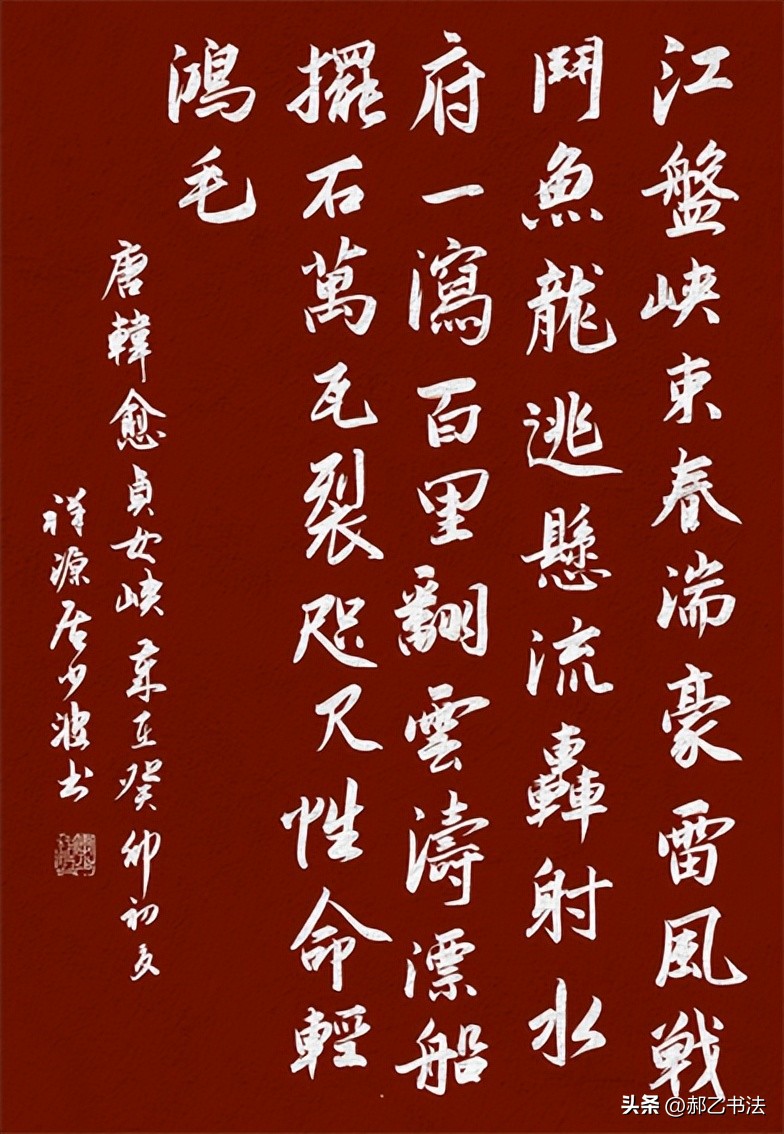 江盤峽束春湍豪雷風戦
鬥魚龍逃懸流轟射水
府一瀉百里翻雲濤漂船
擺石萬瓦裂咫尺性命輕
鴻毛
唐韓愈貞女峽歲在癸卯初夏
祥源居少波书
头条 @郝乙书法